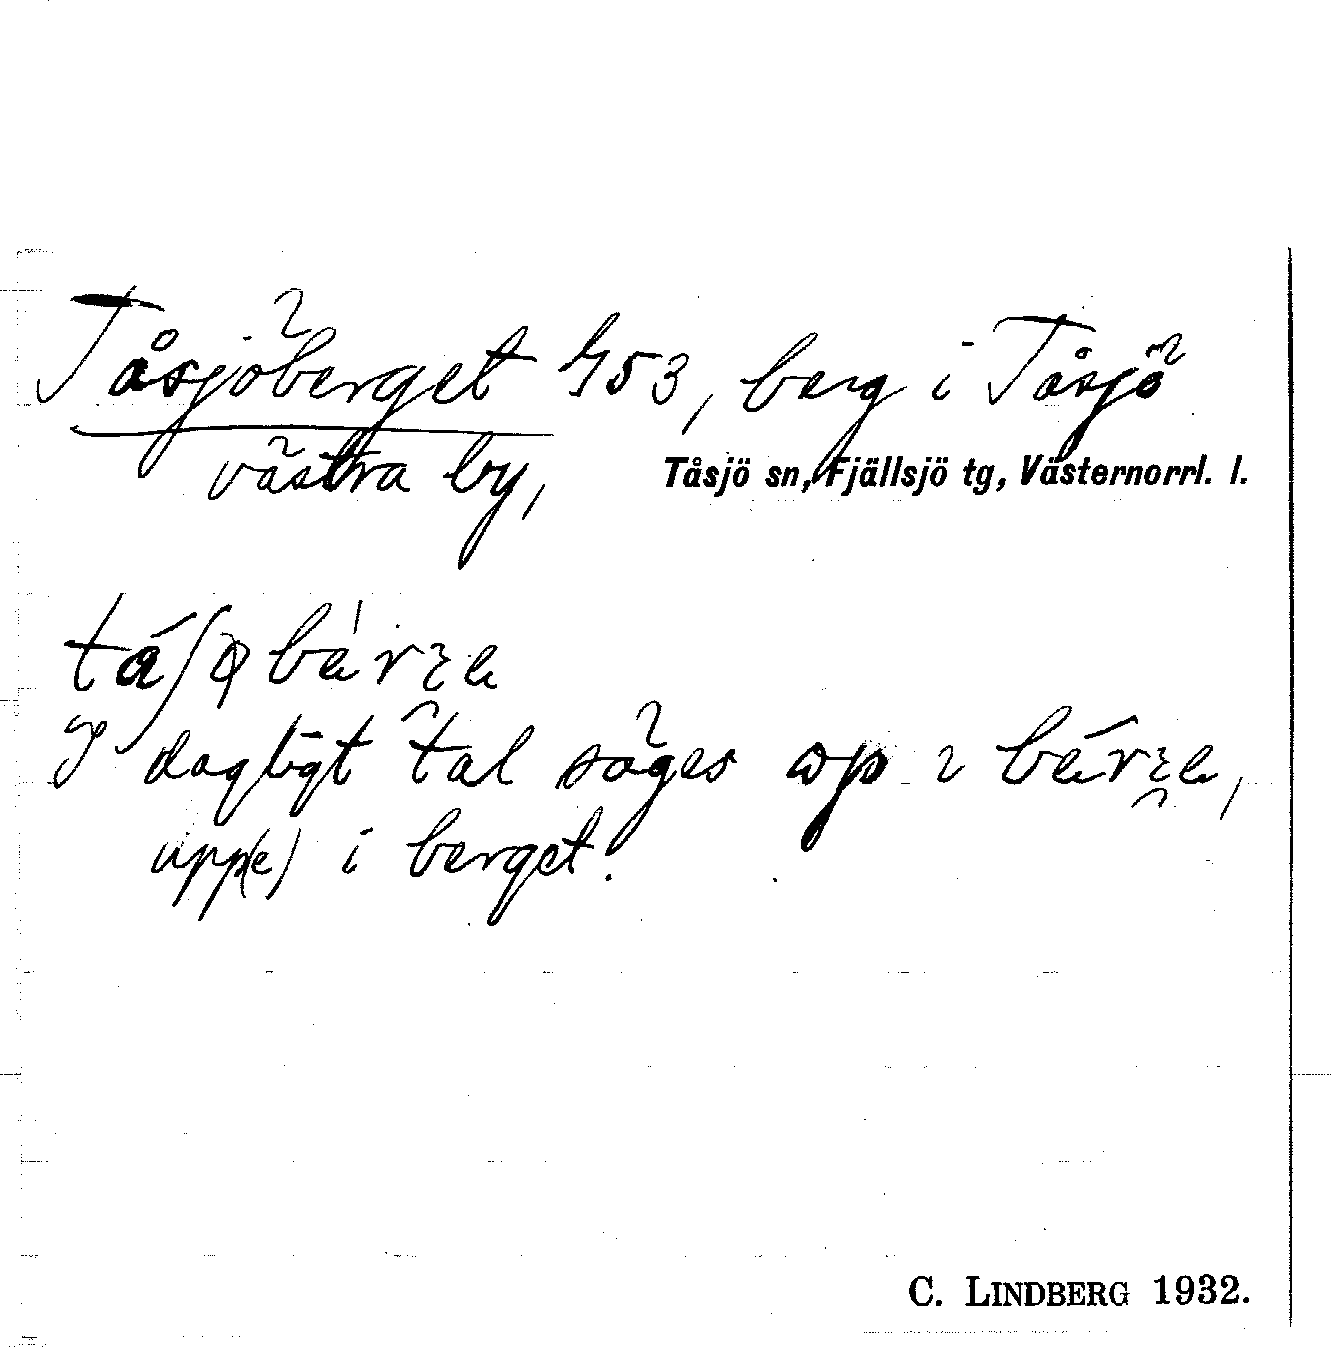 Tåsjöberget 453, berg i Tåsjö
västra by, Tåsjö sn, Fjällsjö tg, Västernorrl. l.
I dagligt tal säges
upp(e) i berget.
C. LINDBERG 1932.